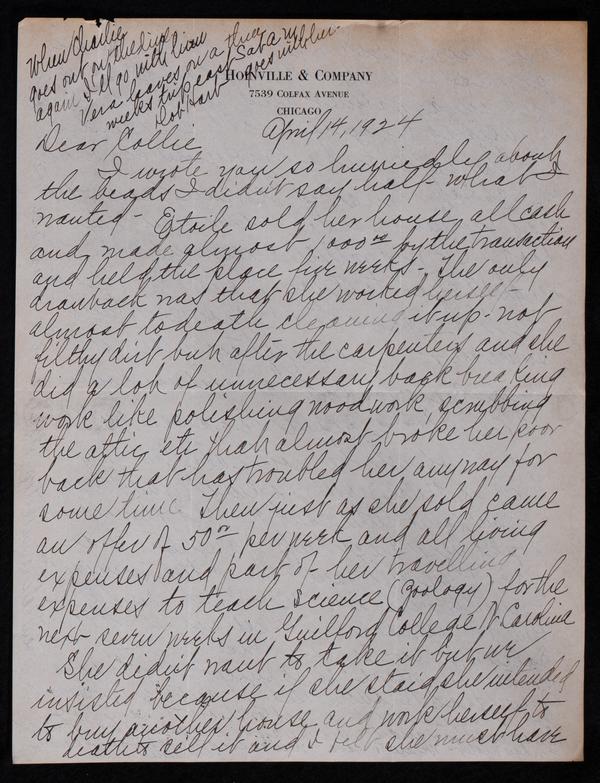 When Charlie
goes out on the dime
again I'll go with him
Vera leaves on a three
weeks trip east Sat a.m.
Dob Hart goes with her.
HOINVILLE & COMPANY
7539 COLFAX AVENUE
CHICAGO
April 14, 1924
Dear Collie
I wrote you so hurriedly about
the beads I didn't say half what I
wanted - Etoile sold her house, all cash
and made almost 1000 00 by the transaction
and held the place five weeks - The only
drawback was that she worked herself
almost to death cleaning it up - not
filthy dirt but after the carpenters and she
did a lot of unnecessary back breaking
work like polishing woodwork, scrubbing
the attic etc that almost broke her poor
back that has troubled her anyway for
some time. Then just as she sold came
an offer of 50 00 per week and all living
expenses and part of her travelling
expenses to teach Science (Zoology) for the
next seven weeks in Guilford College N Carolina
She didn't want to take it but we
insisted because if she staid, she intended
to buy another house and work herself to
death to sell it and I felt she must have